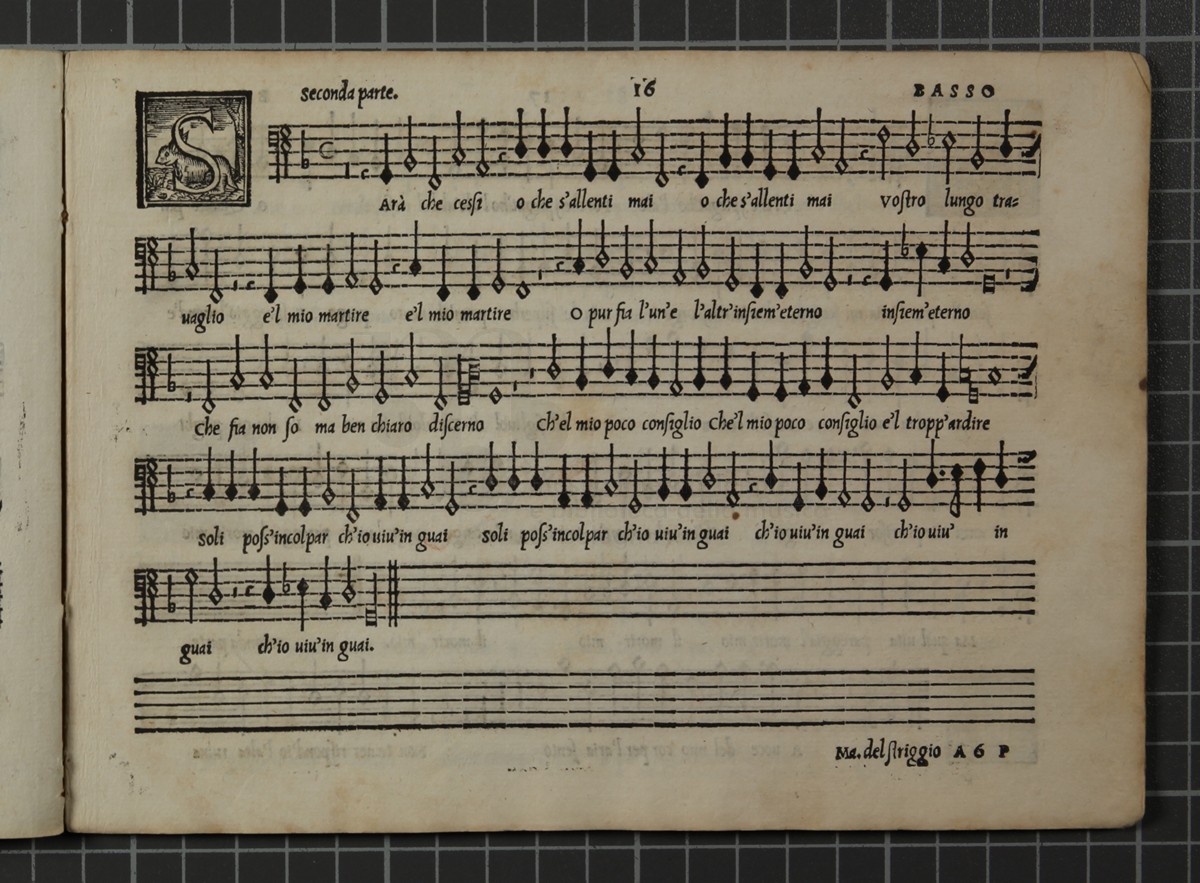 seconda parte. 16 BASSO
S
Arà che cessi o che s'allenti mai o che s'allenti mai vostro lungo tra=
uaglio e'l mio martire e'l mio martire O pur fia l'un'e l'altr'insiem'eterno insiem'eterno
Che fia non so ma ben chiaro discerno Ch'el mio poco consiglio Che'l mio poco consiglio e'l tropp'ardire
soli poss'incolpar ch'io uiu'in guai soli poss'incolpar ch'io uiu'in guai ch'io uiu'in guai ch'io uiu' in
guai ch'io uiu'in guai.
Ma. del striggio A 6 P